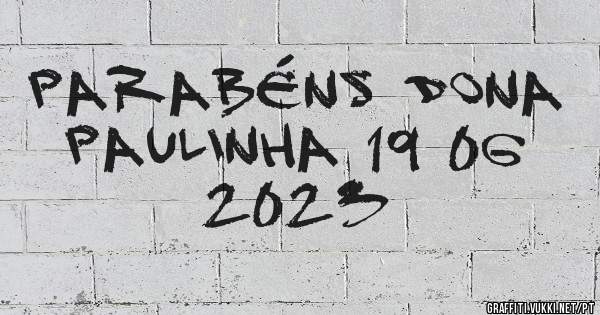 PARABÉNS DONA
PAULINHA 19 06
2023
GRAFFITI.VUKKI.NET/PT